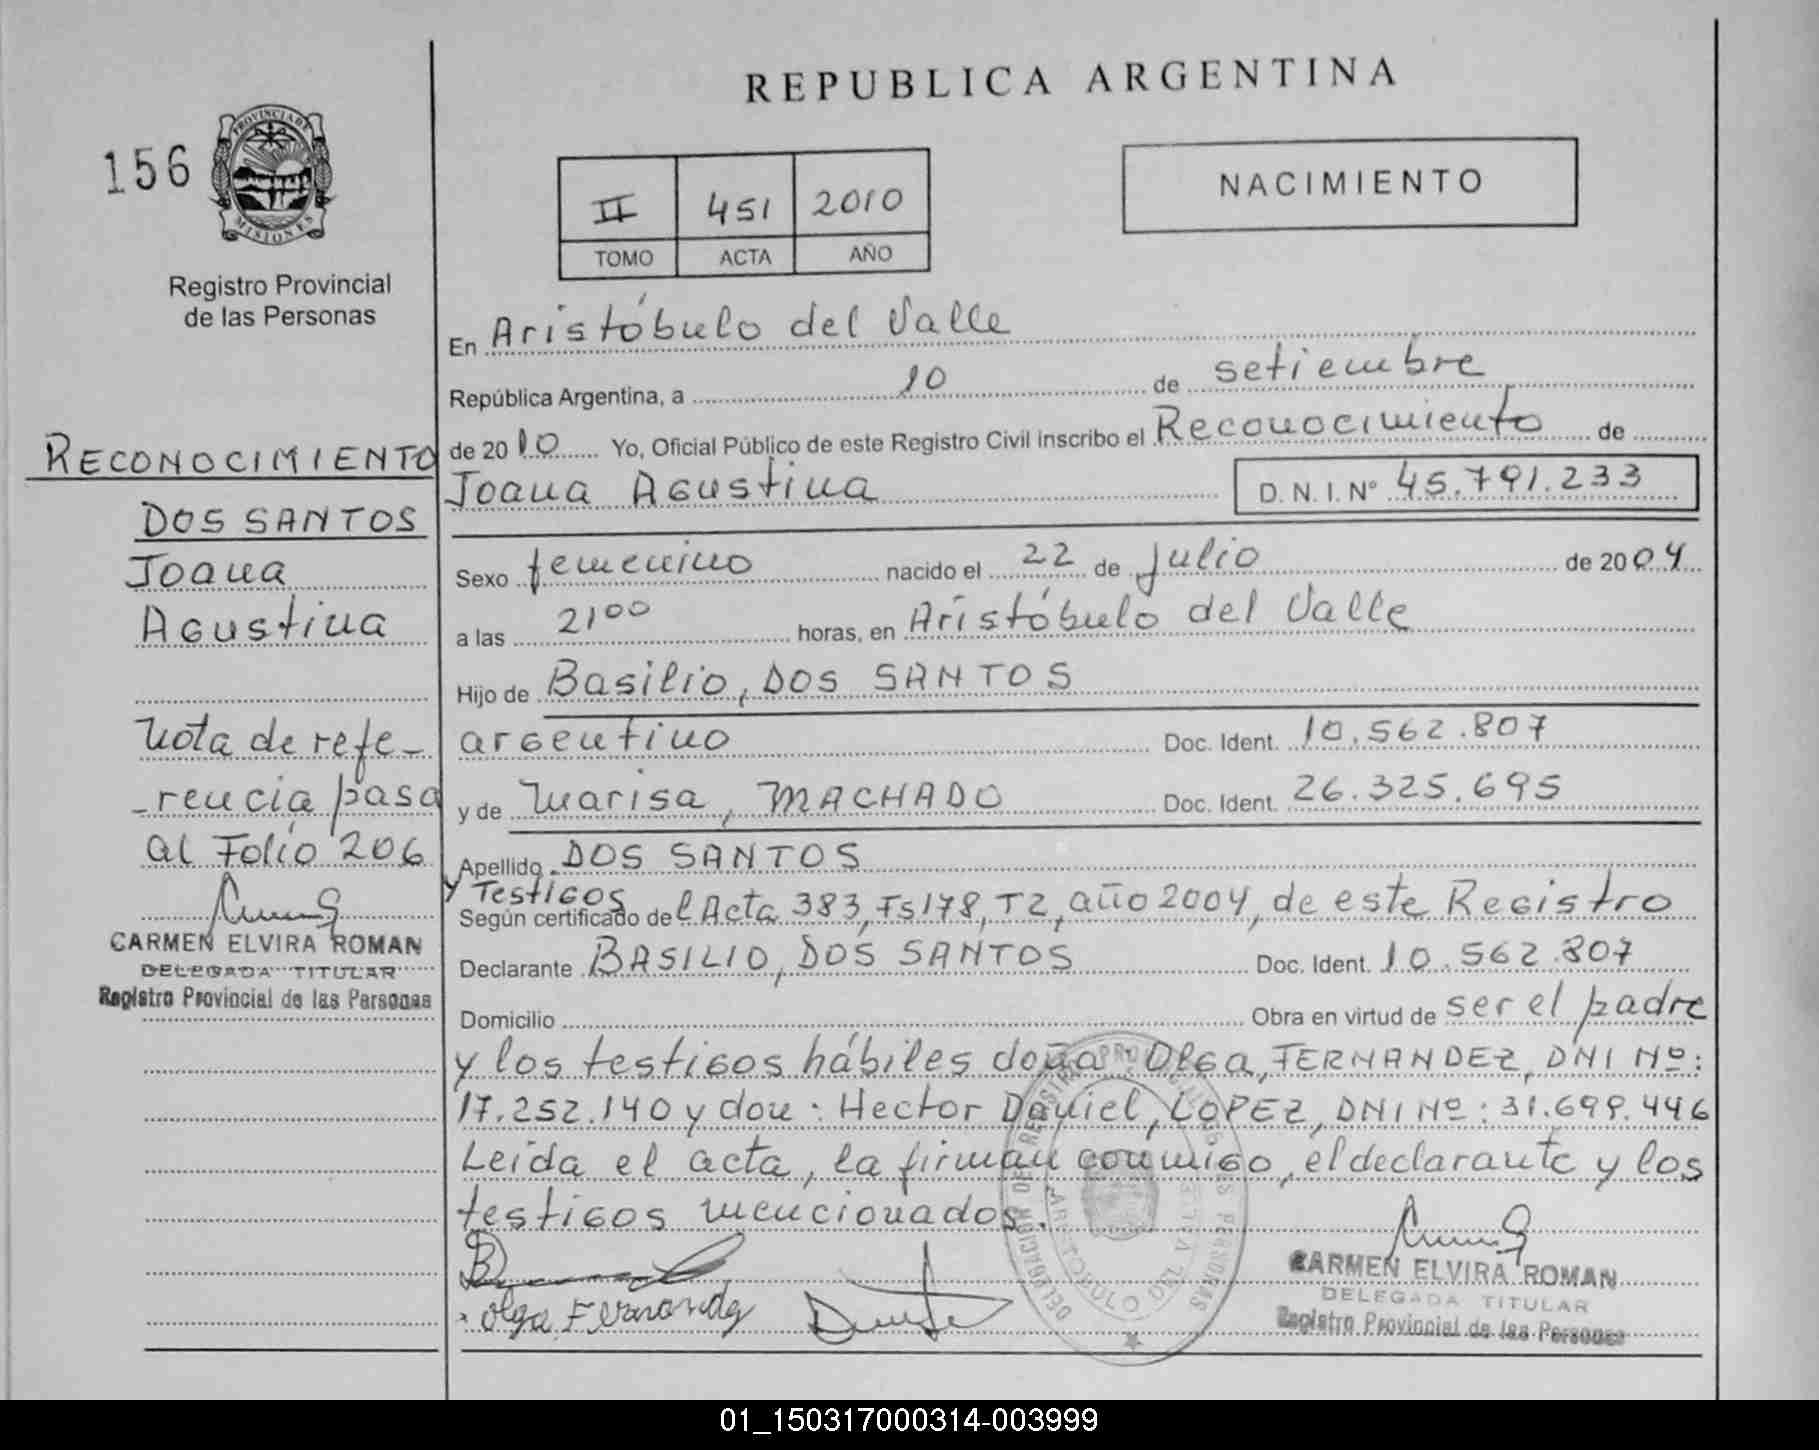 REPUBLICA ARGENTINA
156
PROVINCIA DE
MISIONES
Registro Provincial
de las Personas
II 451 2010
TOMO ACTA AÑO
NACIMIENTO
En Aristóbulo del Valle
República Argentina, a 10 de setiembre
de 2010 Yo, Oficial Público de este Registro Civil inscribo el Reconocimiento de
Joana Agustina D. N. I. Nº 45.791.233
Sexo femenino nacido el 22 de julio de 2004
a las 21⁰⁰ horas, en Aristóbulo del Valle
Hijo de Basilio, DOS SANTOS
argentino Doc. Ident. 10.562.807
y de Marisa, MACHADO Doc. Ident. 26.325.695
Apellido DOS SANTOS
y Testigos
Según certificado del Acta 383, Fs 178, T2, año 2004, de este Registro
Declarante BASILIO, DOS SANTOS Doc. Ident. 10.562.807
Domicilio Obra en virtud de ser el padre
y los testigos hábiles doña: Olga, FERNANDEZ, DNI Nº:
17.252.140 y don: Hector Daniel, LOPEZ, DNI Nº: 31.699.446
Leída el acta, la firman conmigo, el declarante y los
testigos mencionados.
Olga Fernandez
CARMEN ELVIRA ROMAN
DELEGADA TITULAR
Registro Provincial de las Personas
RECONOCIMIENTO
DOS SANTOS
Joana
Agustina
Nota de refe-
-rencia pasa
al Folio 206
CARMEN ELVIRA ROMAN
DELEGADA TITULAR
Registro Provincial de las Personas
ARISTOBULO DEL VALLE
01_150317000314-003999